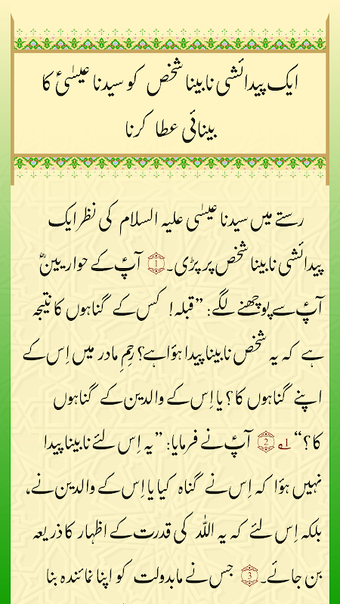 ایک پیدائشی نابینا شخص کو سیدنا عیسٰیؑ کا
بینائی عطا کرنا
رستے میں سیدنا عیسٰی علیہ السلام کی نظر ایک
پیدائشی نابینا شخص پر پڑی۔ 1 آپؑ کے حواریینؓ
آپؑ سے پوچھنے لگے: ”قبلہ! کس کے گناہوں کا نتیجہ
ہے کہ یہ شخص نابینا پیدا ہؤا ہے؟ رحِمِ مادر میں اِس کے
اپنے گناہوں کا؟ یا اِس کے والدین کے گناہوں
کا؟“ ؎۱ 2 آپؑ نے فرمایا: ”یہ اِس لئے نابینا پیدا
نہیں ہؤا کہ اِس نے گناہ کیا یا اِس کے والدین نے،
بلکہ اِس لئے کہ یہ اللہ کی قدرت کے اظہار کا ذریعہ
بن جائے۔ 3 جس نے مابدولت کو اپنا نمائندہ بنا